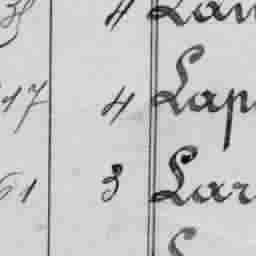 38 4 Lan
17 4 Lap
61 3 Lar